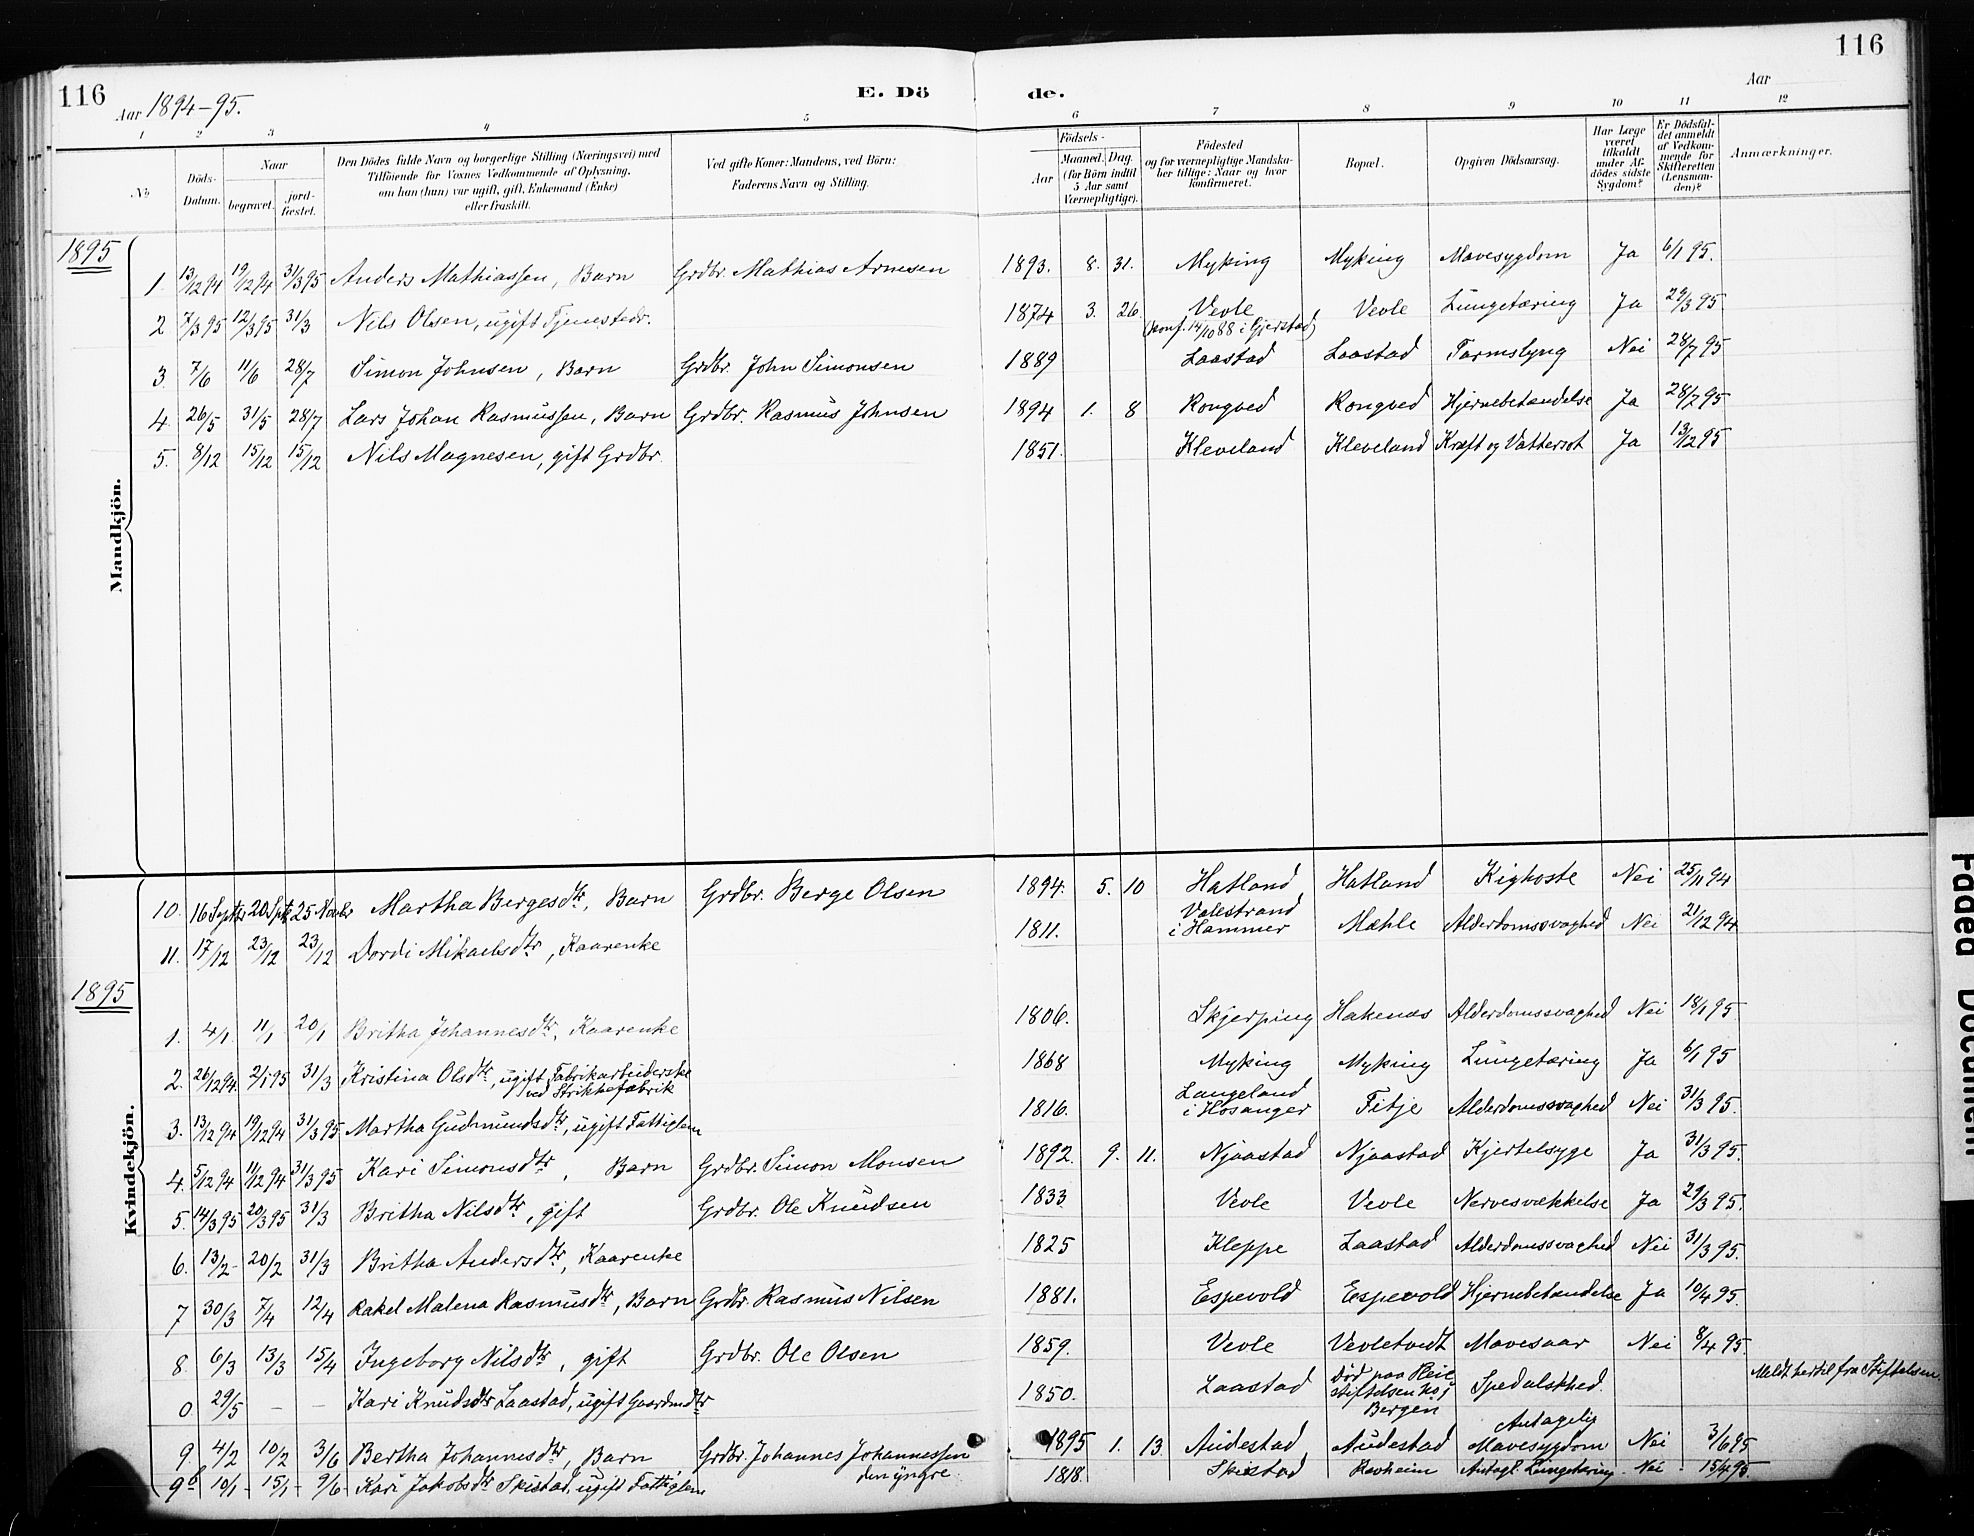 116
116
Aar 1894-95.
E. Dö
de.
Aar
1 2 3 4 5 6 7 8 9 10 11 12
No
Döds-Datum.
Naar
begravet.
jord-fæstet.
Den Dödes fulde Navn og borgerlige Stilling (Næringsvei) med
Tilföiende for Voxnes Vedkommende af Oplysning,
om han (hun) var ugift, gift, Enkemand (Enke)
eller fraskilt.
Ved gifte Koner: Mandens, ved Börn:
Faderens Navn og Stilling.
Födsels-
Aar
Maaned. Dag.
(for Börn indtil
5 Aar samt
Værnepligtige).
Födested
og for værnepligtige Mandska-
ber tillige: Naar og hvor
konfirmeret.
Bopæl.
Opgiven Dödsaarsag.
Har Læge
været
tilkaldt
under Af-
dödes sidste
Sygdom?
Er Dödsfal-
det anmeldt
af Vedkom-
mende for
Skifteretten
(Lensman-
den)?
Anmærkninger.
1895
Mandkjön.
1 13/12 94 19/12 94 31/3 95 Anders Mathiassen, Barn Grdbr. Mathias Arnesen 1893. 8. 31. Myking Myking Mavesygdom Ja 6/1 95.
2 7/3 95 12/3 95 31/3 Nils Olsen, ugift Tjenestedr. 1874 3. 26. Veole Veole Lungetæring Ja 29/3 95
(konf. 14/10 88 i Gjerstad)
3 7/6 11/6 28/7 Simon Johnsen, Barn Grdbr. John Simonsen 1889 Laastad Laastad Tarmslyng Nei 28/7 95
4. 26/5 31/5 28/7 Lars Johan Rasmussen, Barn Grdbr. Rasmus Johnsen 1894 1. 8 Rongved Rongved Hjernebetændelse Ja 28/7 95
5. 8/12 15/12 15/12 Nils Magnesen, gift Grdbr. 1851. Kleveland Kleveland Kræft og Vattersot Ja 13/12 95
Kvindekjön.
10. 16 Septbr 20 Sptr 25 Novbr Martha Bergesdtr, Barn Grdbr. Berge Olsen 1894. 5. 10 Hatland Hatland Kighoste Nei 25/11 94
11. 17/12 23/12 23/12 Dordi Mikaelsdtr, Kaarenke 1811. Valestrand i Hammer Mæhle Alderdomssvaghed Nei 21/12 94
1895
1. 4/1 11/1 20/1 Britha Johannesdtr, Kaarenke 1806. Skjerping Hakenæs Alderdomssvaghed Nei 18/1 95
2. 26/12 94. 2/1 95 31/3 Kristina Olsdtr, ugift Fabrikarbeiderske 1868 Myking Myking Lungetæring Ja 6/1 95
ved Strikkefabrik
3. 13/12 94 19/12 94 31/3 95 Martha Gudmundsdtr, ugift Fattiglem 1816. Langeland i Hosanger Fitje Alderdomssvaghed Nei 31/3 95.
4. 5/12 94 11/12 94 31/3 95 Kari Simonsdtr, Barn Grdbr. Simon Monsen 1892. 9. 11. Njaastad Njaastad Kjertelsyge Ja 31/3 95.
5. 14/3 95 20/3 95 31/3 Britha Nilsdtr, gift Grdbr. Ole Knudsen 1833 Veole Veole Nervesvækkelse Ja 29/3 95.
6. 13/2 20/2 31/3 Britha Andersdtr, Kaarenke 1825 Kleppe Laastad Alderdomssvaghed Nei 31/3 95.
7 30/3 7/4 12/4 Rakel Malena Rasmusdtr, Barn Grdbr. Rasmus Nilsen 1881. Espevold Espevold Hjernebetændelse Ja 10/4 95.
8. 6/3 13/3 15/4 Ingeborg Nilsdtr, gift Grdbr. Ole Olsen 1859. Veole Veoletvedt Mavesaar Nei 8/4 95.
0 29/5 - - Kari Knudsdtr Laastad, ugift Gaardmdtr 1850. Laastad Död paa Pleie stiftelsen No 1 Bergen Spedalskhed. Meldt hertil fra Stiftelsen.
9. 4/2 10/2 3/6 Bertha Johannesdtr, Barn Grdbr. Johannes Johannessen 1895 1. 13. Audestad Audestad Antagelig Mavesygdom Nei 3/6 95
den yngre.
9b 10/1 - 15/1 - 9/6 - Kari Jakobsdtr Skistad, ugift Fattiglem 1818. Skistad Ravheim Antagl. Lungetæring - Nei - 15/4 95.
Faded Document